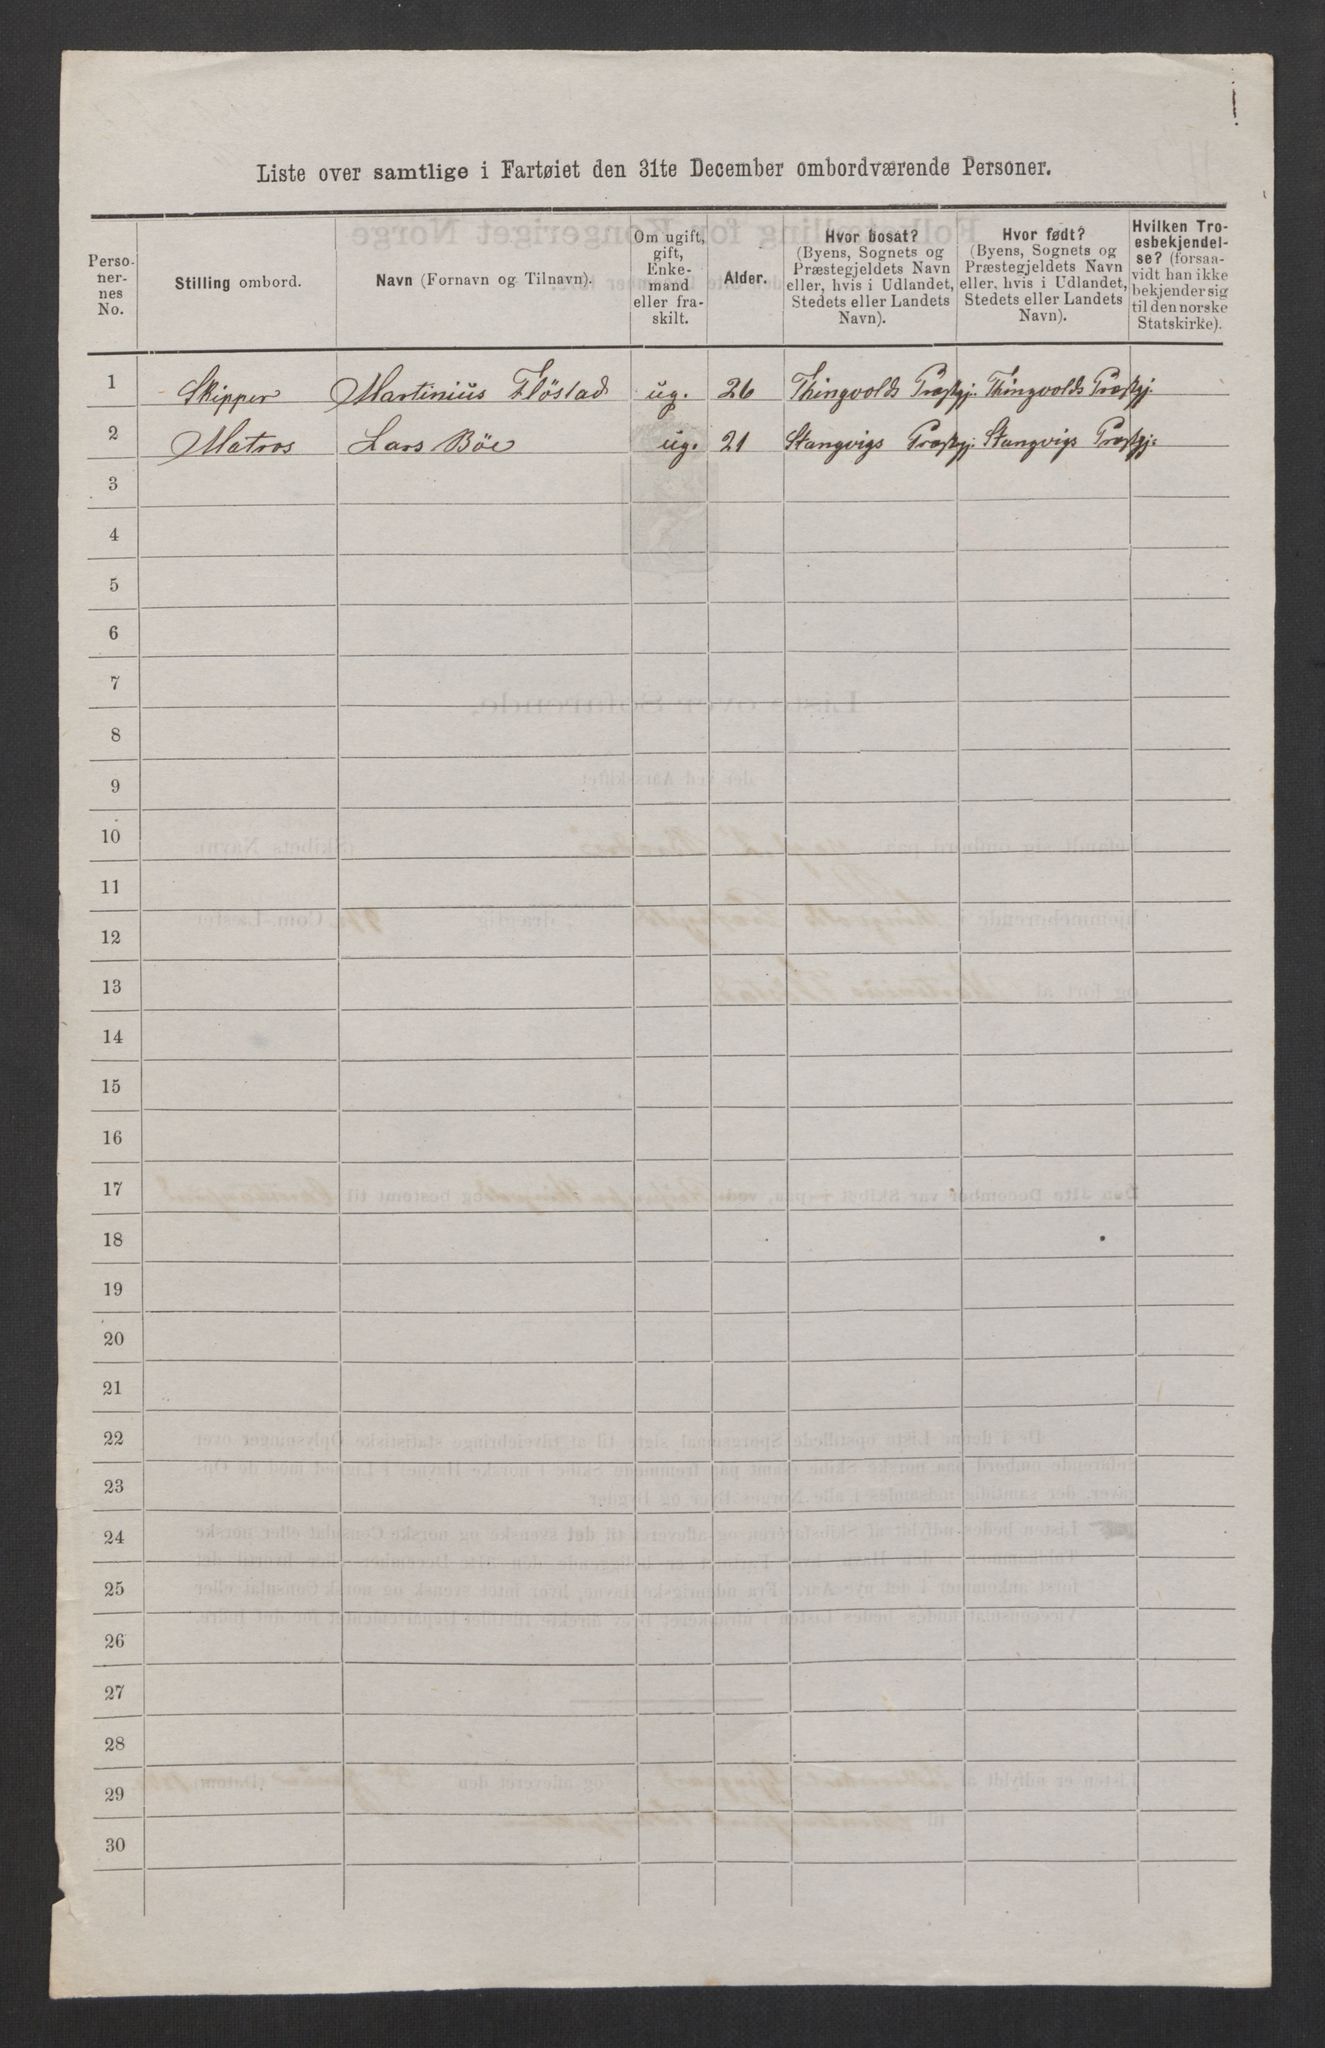 Liste over samtlige i Fartøiet den 31te December ombordværende Personer.
Perso-
ner-
nes
No.
Stilling ombord.
Navn (Fornavn og Tilnavn).
Om ugift,
gift,
Enke-
mand
eller fra-
skilt.
Alder.
Hvor bosat?
(Byens, Sognets og
Præstegjeldets Navn
eller, hvis i Udlandet,
Stedets eller Landets
Navn).
Hvor født?
(Byens, Sognets og
Præstegjeldets Navn
eller, hvis i Udlandet,
Stedets eller Landets
Navn).
Hvilken Tro-
esbekjendel-
se? (forsaa-
vidt han ikke
bekjender sig
til den norske
Statskirke).
1 Skipper Martinius Fløstad ug. 26 Thingvolds Præstgj. Thingvolds Præstgj.
2 Matros Lars Böe ug. 21 Stangvigs Præstgj. Stangvigs Præstgj.
3
4
5
6
7
8
9
10
11
12
13
14
15
16
17
18
19
20
21
22
23
24
25
26
27
28
29
30